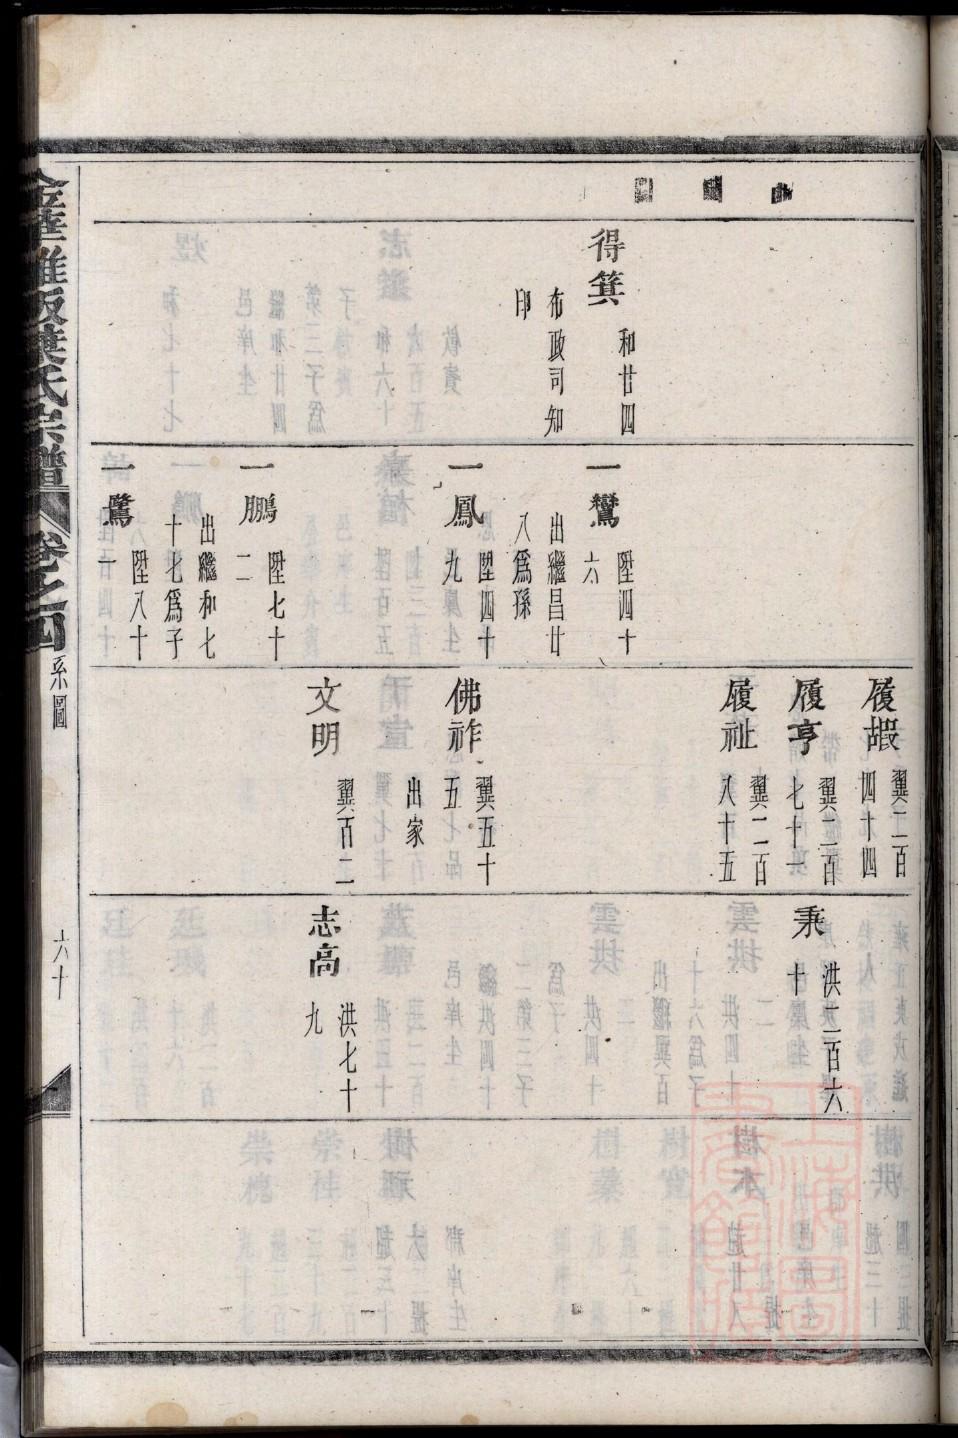 得箕
和廿四
布政司知
印
一鸞
陞四十
六
出繼昌廿
八爲孫
一鳳
陞四十
九
一鵬
陞七十
二
出繼和七
十七爲子
一鷺
陞八十
一
履嘏
翼二百
四十四
履亨
翼二百
七十一
履祉
翼二百
八十五
佛祚
翼五十
五
出家
文明
翼百二
秉
洪二百六
十
志高
洪七十
九
葉氏宗譜
卷之四
系圖
六十